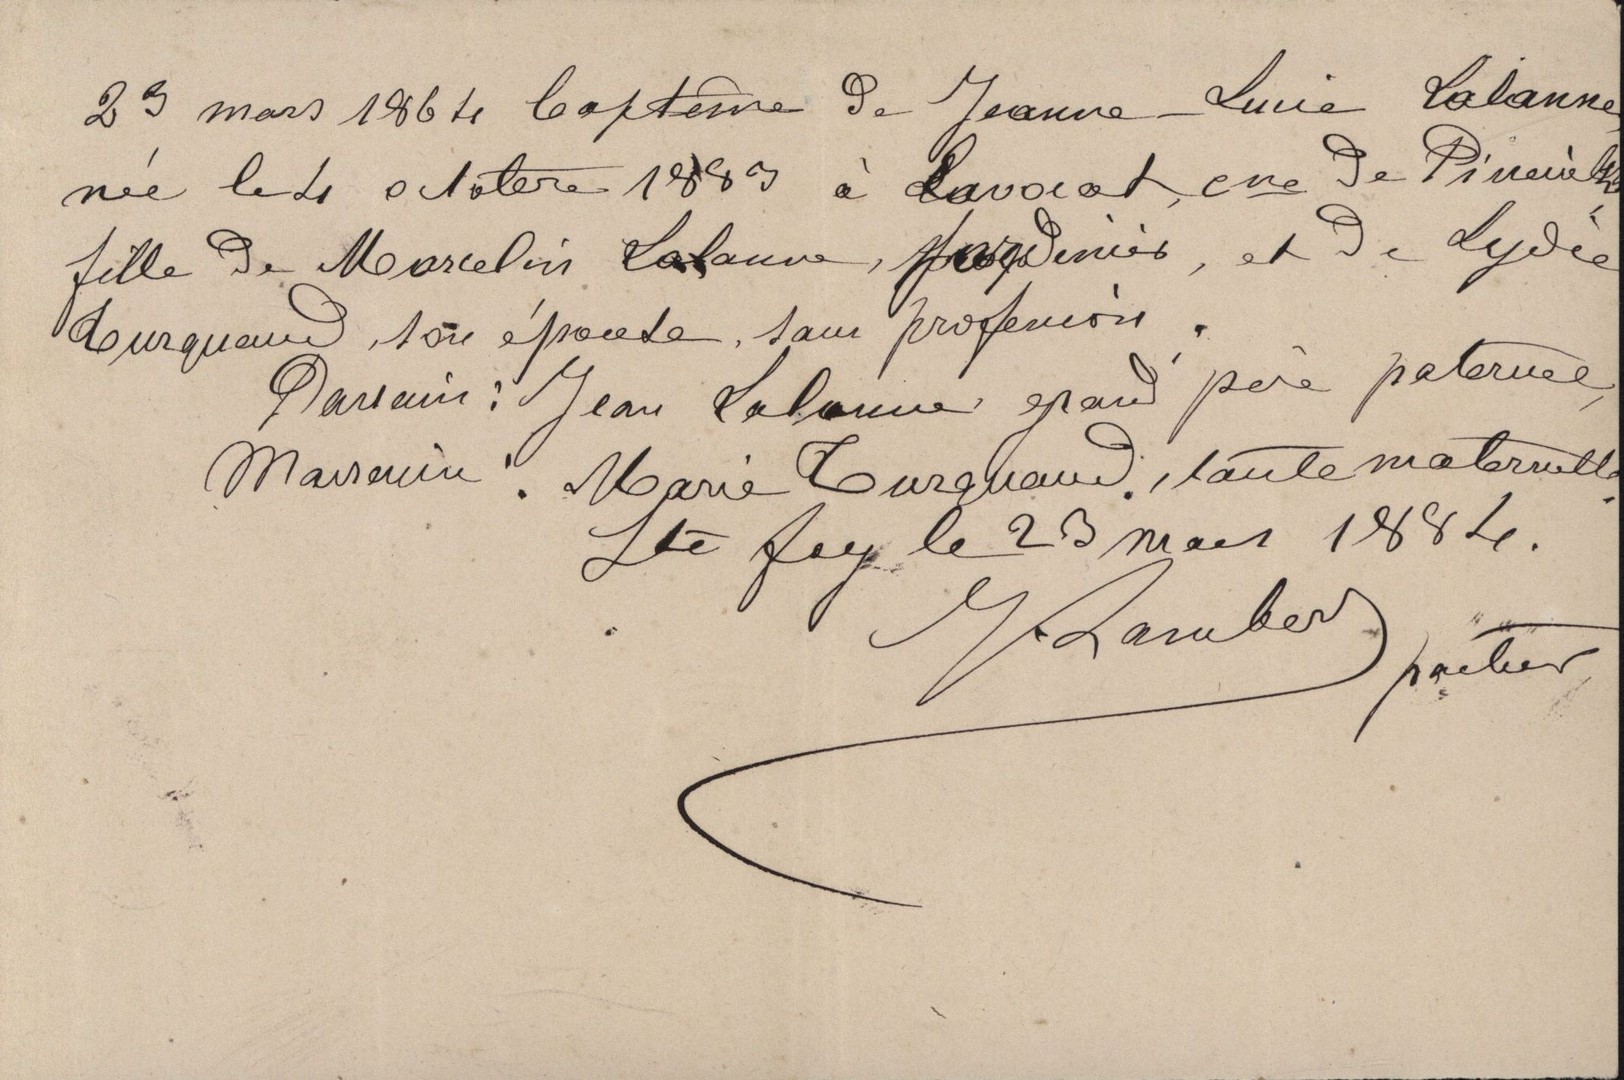 23 mars 1864 baptême de Jeanne-Lucie Lalanne
née le 4 octobre 1883 à Lavocat, cne de Pineuilh
fille de Marcelin Lalanne, jardinier, et de Lydie
Turquaud, son épouse, sans profession.
Parrain : Jean Lalanne grand père paternel,
Marraine : Marie Turquaud, tante maternelle.
Ste foy le 23 mars 1884.
J. Lambert
pasteur